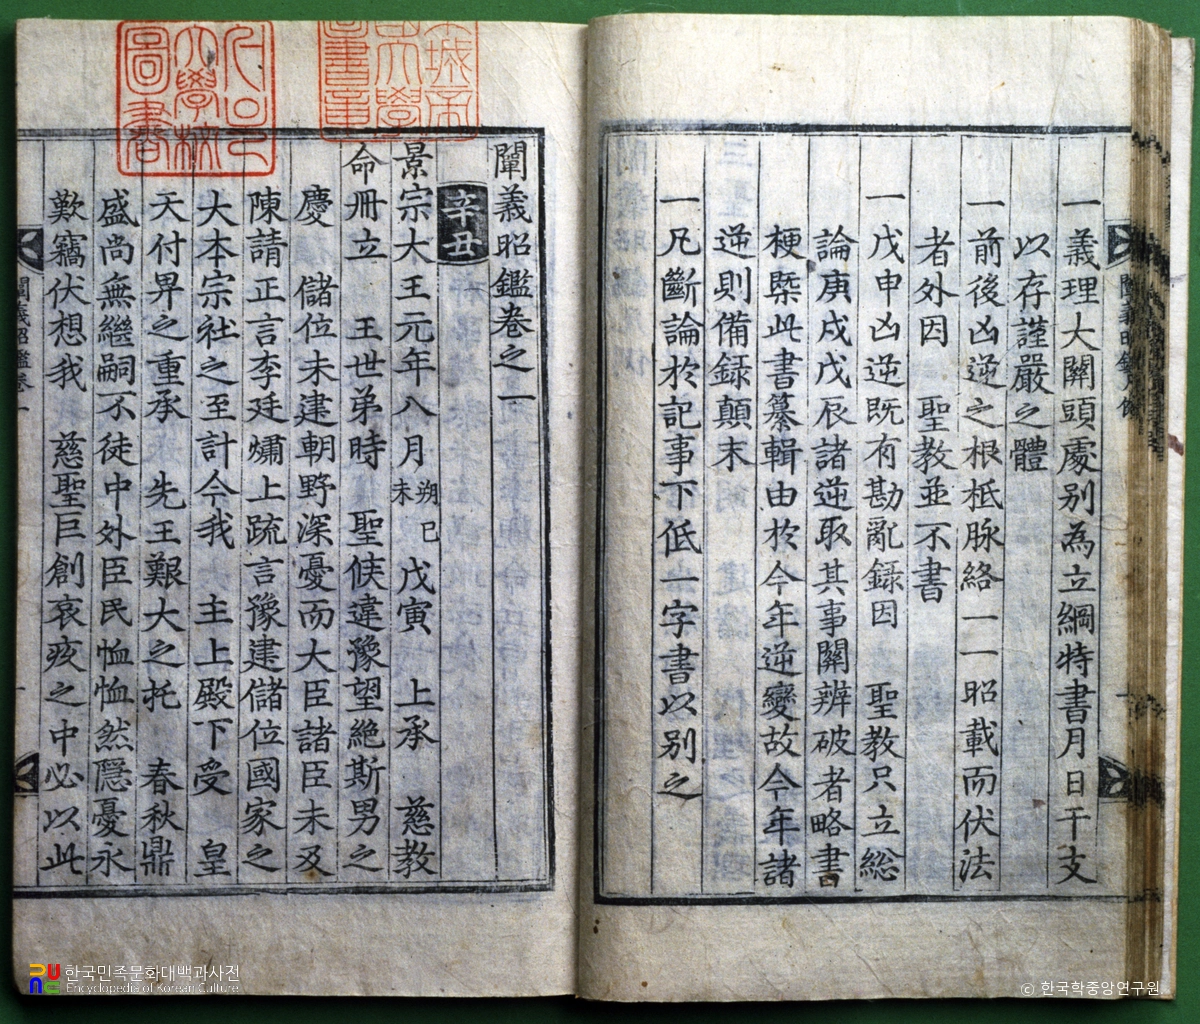 一義理大關頭處別為立綱特書月日干支
以存謹嚴之體
一前後凶逆之根柢脉絡一一昭載而伏法
者外因 聖教並不書
一戊申凶逆既有勘亂録因 聖教只立総
論庚戌戊辰諸逆取其事關辨破者略書
梗槩此書纂輯由於今年逆變故今年諸
逆則備録顛末
一凡斷論於記事下低一字書以別之
闡義昭鑑卷之一
辛丑
景宗大王元年八月朔己未戊寅 上承 慈教
命冊立 王世弟時 聖候違豫望絶斯男之
慶 儲位未建朝野深憂而大臣諸臣未及
陳請正言李廷熽上疏言豫建儲位國家之
大本宗社之至計今我 主上殿下受 皇
天付畀之重承 先王艱大之托 春秋鼎
盛尚無繼嗣不徒中外臣民恤恤然隱憂永
歎竊伏想我 慈聖巨創哀疚之中必以此
闡義昭鑑卷一
한국민족문화대백과사전
Encyclopedia of Korean Culture
ⓒ 한국학중앙연구원